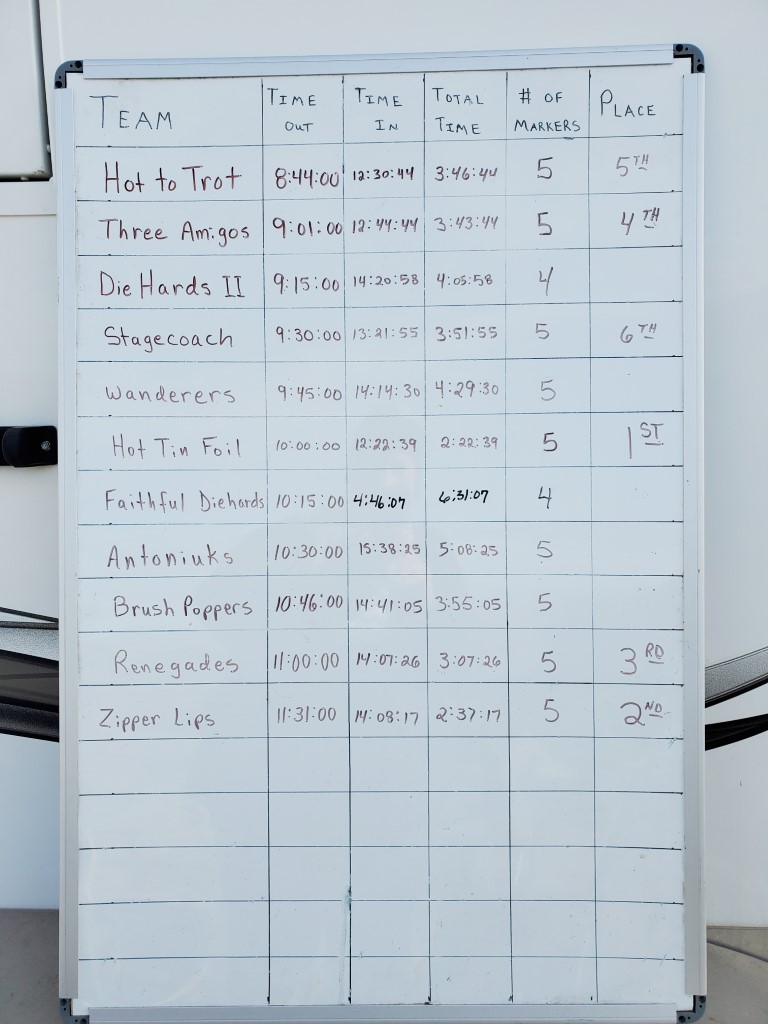 TEAM TIME OUT TIME IN TOTAL TIME # OF MARKERS PLACE
Hot to Trot 8:44:00 12:30:44 3:46:44 5 5TH
Three Amigos 9:01:00 12:44:44 3:43:44 5 4TH
Die Hards II 9:15:00 14:20:58 4:05:58 4
Stagecoach 9:30:00 13:21:55 3:51:55 5 6TH
Wanderers 9:45:00 14:14:30 4:29:30 5
Hot Tin Foil 10:00:00 12:22:39 2:22:39 5 1ST
Faithful Diehards 10:15:00 4:46:07 6:31:07 4
Antoniuks 10:30:00 15:38:25 5:08:25 5
Brush Poppers 10:46:00 14:41:05 3:55:05 5
Renegades 11:00:00 14:07:26 3:07:26 5 3RD
Zipper Lips 11:31:00 14:08:17 2:37:17 5 2ND